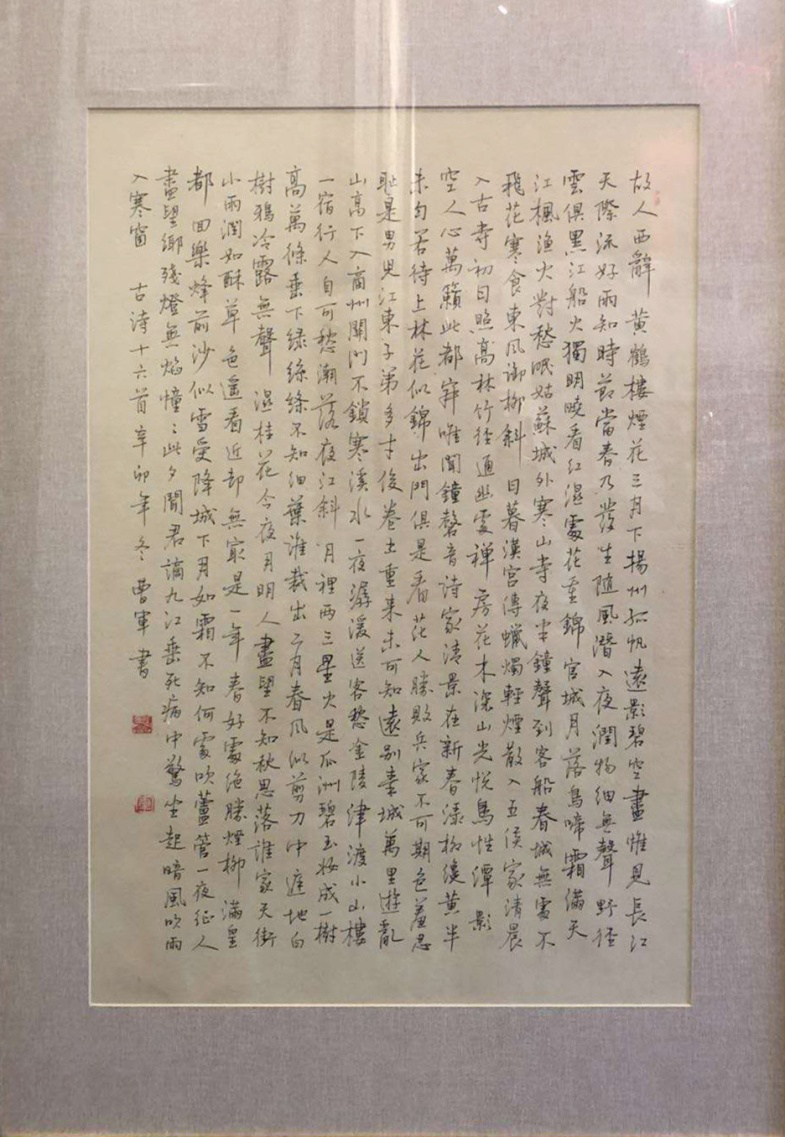 故人西辭黃鶴樓煙花三月下揚州孤帆遠影碧空盡惟見長江
天際流好雨知時節當春乃發生隨風潛入夜潤物細無聲野徑
雲俱黑江船火獨明曉看紅濕處花重錦官城月落烏啼霜滿天
江楓漁火對愁眠姑蘇城外寒山寺夜半鐘聲到客船春城無處不
飛花寒食東風御柳斜日暮漢宮傳蠟燭輕煙散入五侯家清晨
入古寺初日照高林竹徑通幽處禪房花木深山光悅鳥性潭影
空人心萬籟此都寂唯聞鐘磬音詩家清景在新春綠柳纔黃半
未勻若待上林花似錦出門俱是看花人勝敗兵家不可期包羞忍
恥是男兒江東子弟多才俊卷土重來未可知遠別秦城萬里遊亂
山高下入商州關門不鎖寒溪水一夜潺湲送客愁金陵津渡小山樓
一宿行人自可愁潮落夜江斜月裡兩三星火是瓜洲碧玉妝成一樹
高萬條垂下綠絲絛不知細葉誰裁出二月春風似剪刀中庭地白
樹鴉冷露無聲濕桂花今夜月明人盡望不知秋思落誰家天街
小雨潤如酥草色遙看近卻無最是一年春好處絕勝煙柳滿皇
都回樂烽前沙似雪受降城下月如霜不知何處吹蘆管一夜征人
盡望鄉殘燈無焰幢〻此夕聞君謫九江垂死病中驚坐起暗風吹雨
入寒窗 古诗十六首辛卯年冬曹軍書